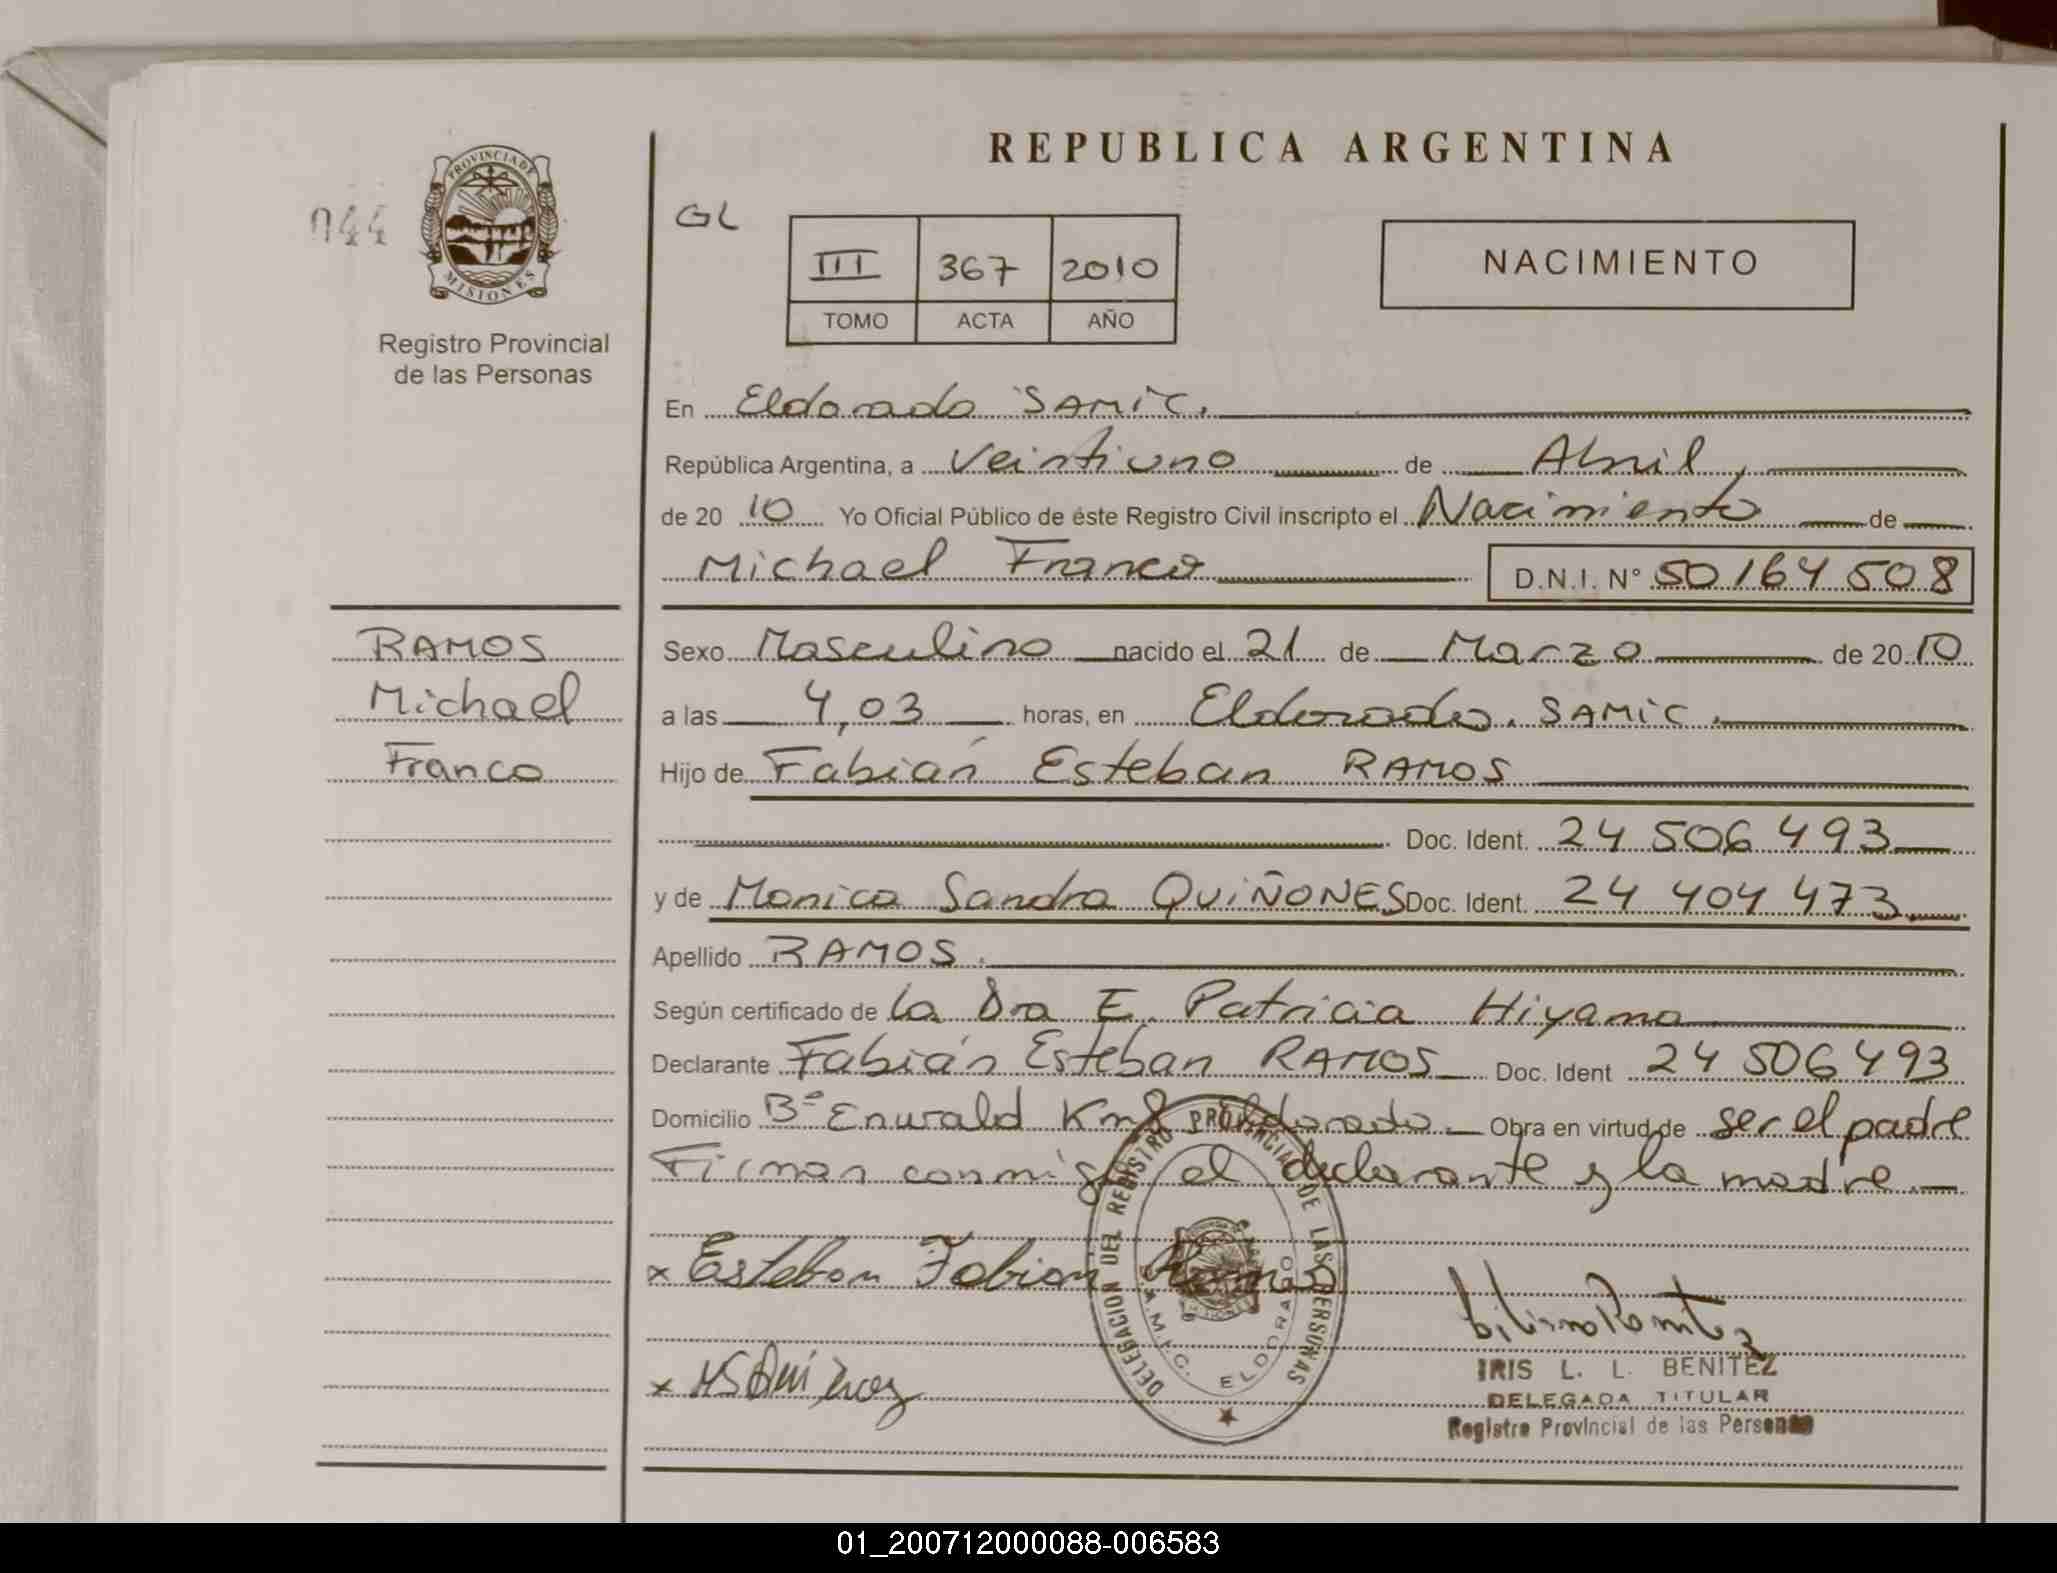 REPUBLICA ARGENTINA
044
PROVINCIA DE
MISIONES
Registro Provincial
de las Personas
GL
III 367 2010
TOMO ACTA AÑO
NACIMIENTO
En Eldorado SAMIC.
República Argentina, a Veintiuno de Abril,
de 20 10 Yo Oficial Público de éste Registro Civil inscripto el Nacimiento de
Michael Franco D.N.I. N° 50164508
RAMOS
Michael
Franco
Sexo Masculino nacido el 21 de Marzo de 20 10
a las 4,03 horas, en Eldorado. SAMIC.
Hijo de Fabián Esteban RAMOS
Doc. Ident. 24 506 493
y de Monica Sandra QUIÑONES Doc. Ident. 24 404 473
Apellido RAMOS.
Según certificado de la Dra E. Patricia Hiyama
Declarante Fabián Esteban RAMOS Doc. Ident 24 506 493
Domicilio Bº Enwald Km8 Eldorado Obra en virtud de ser el padre
Firman conmigo el declarante y la madre
x Esteban Fabian Ramos
x MSQuiñonez
DELEGACION DEL REGISTRO PROVINCIAL DE LAS PERSONAS
S.A.M.I.C. ELDORADO
IRIS L. L. BENITEZ
DELEGADA TITULAR
Registro Provincial de las Personas
01_200712000088-006583